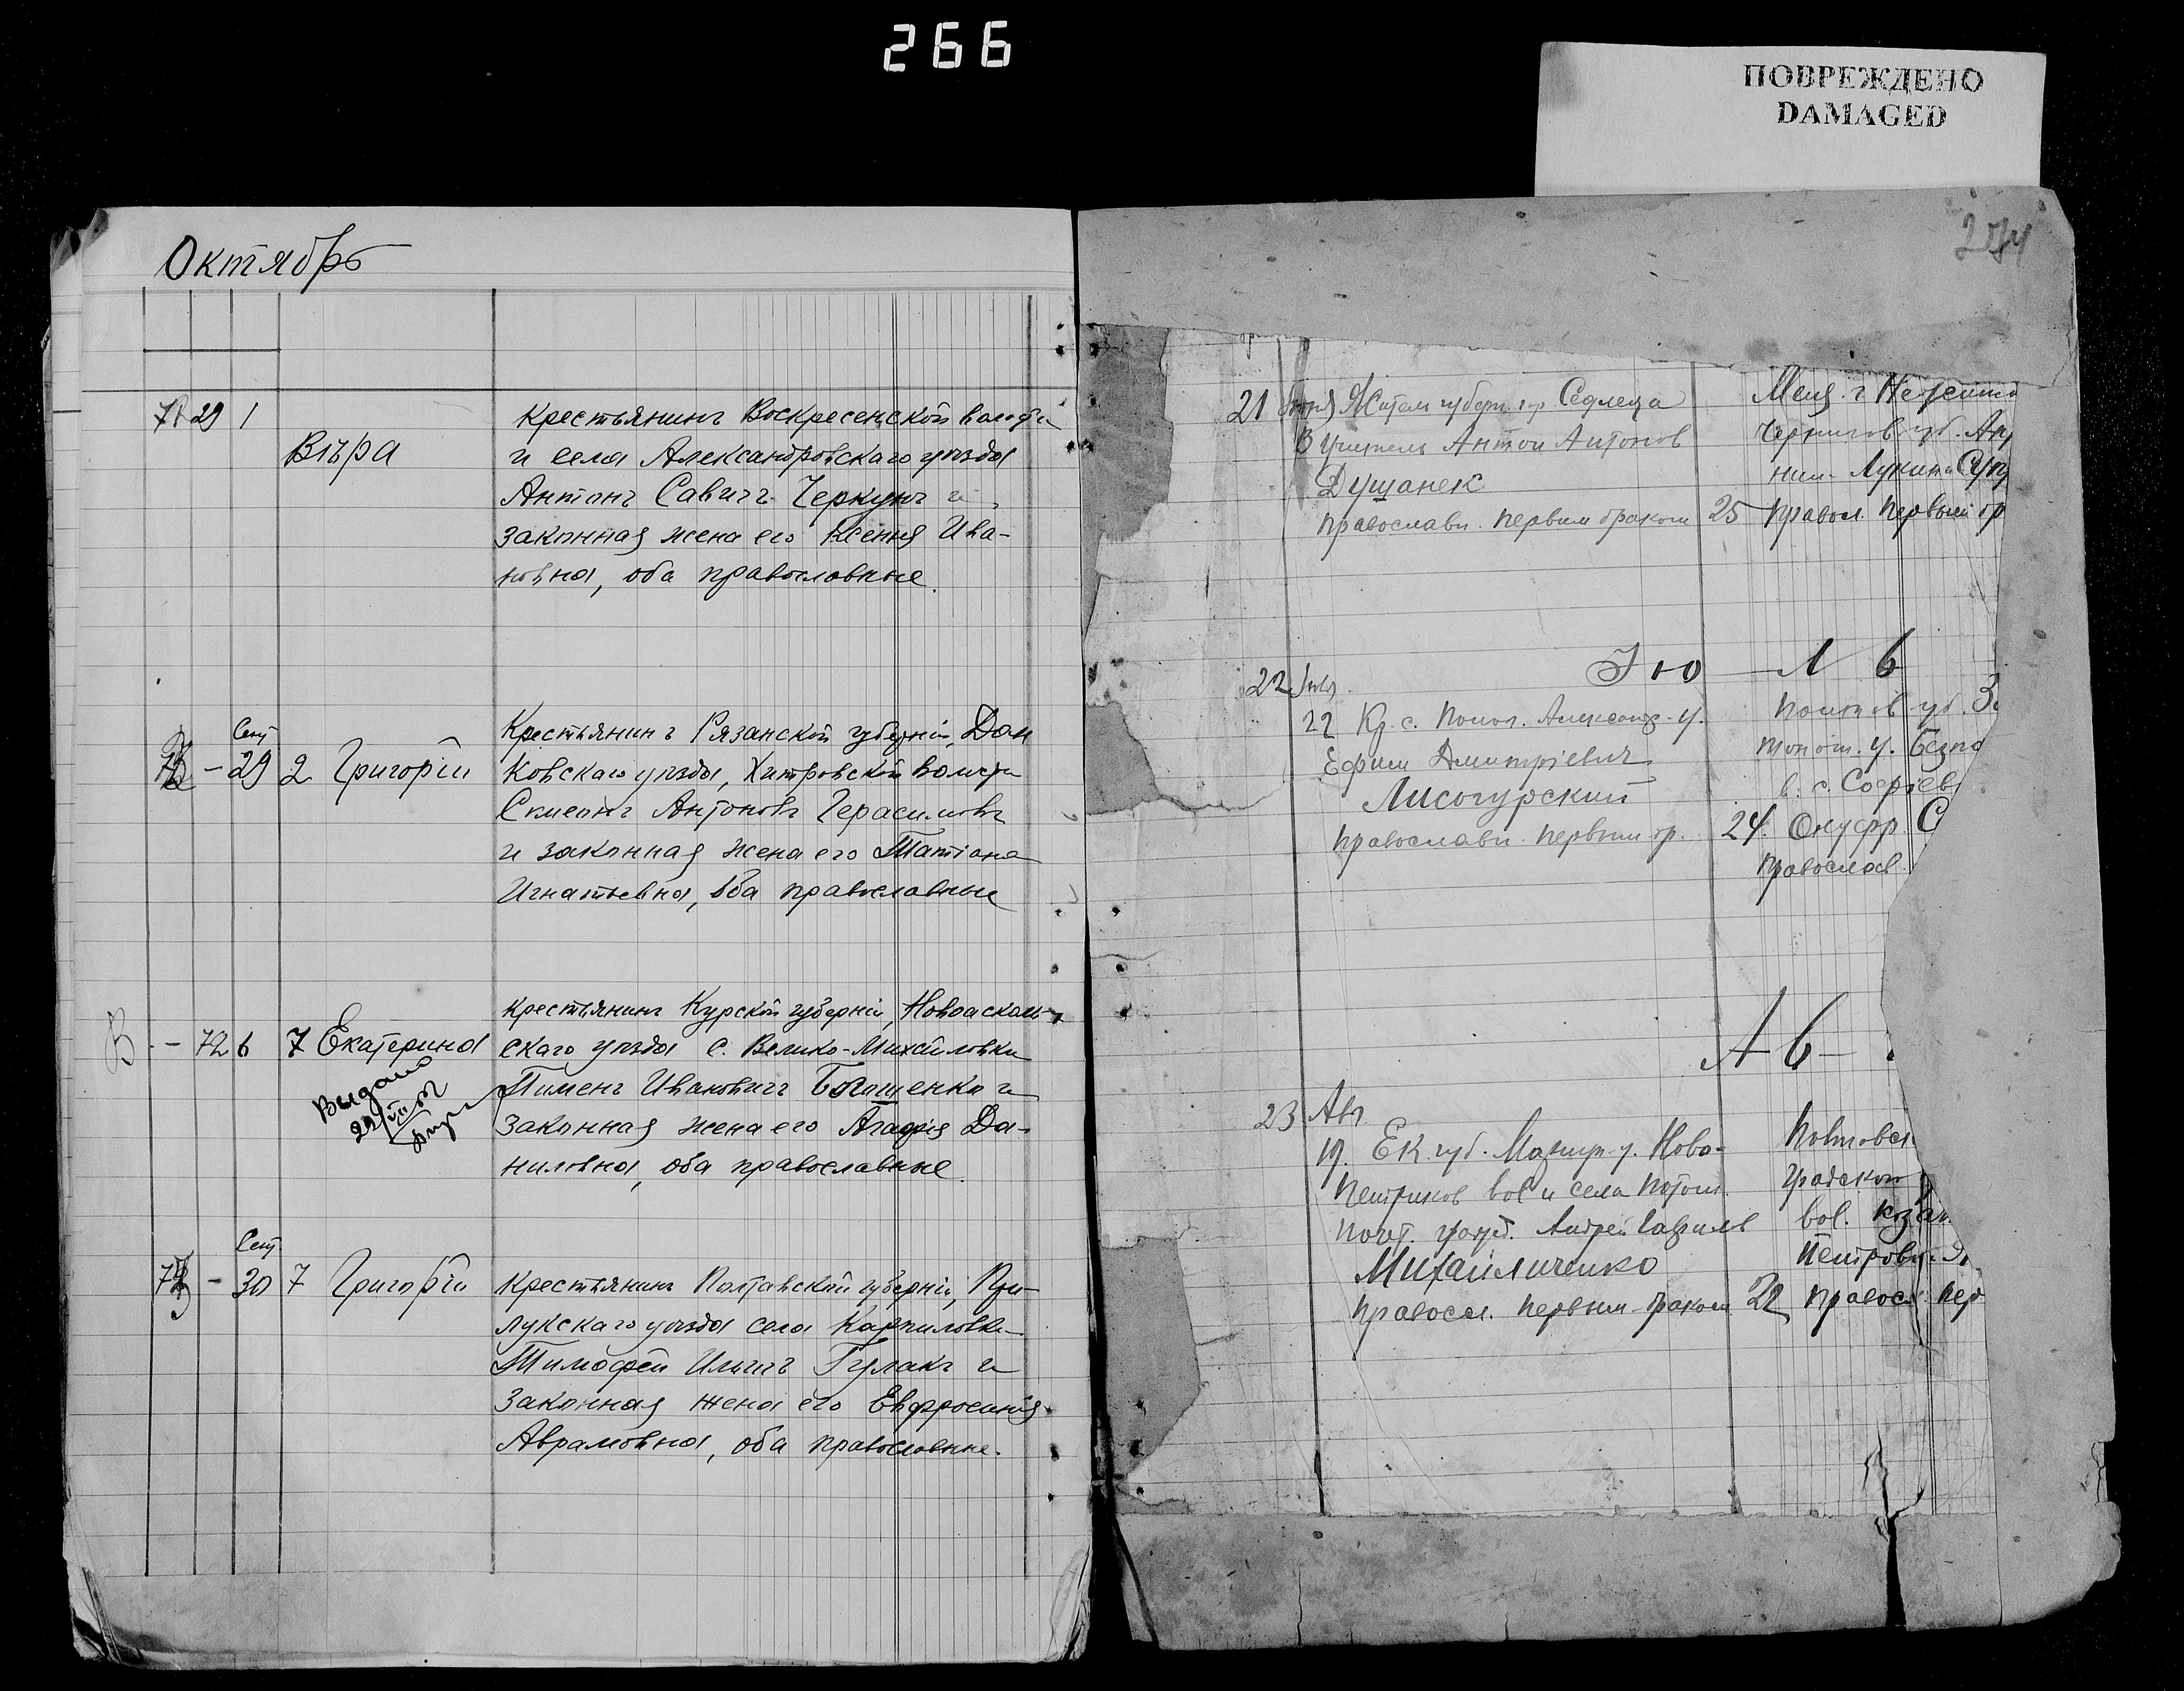 266
ПОВРЕЖДЕНО
DAMAGED
Октябрь
29 1
Крестьянинъ Воскресенской волости
Вѣра
и села Александровскаго уѣзда
Антонъ Савичъ Черкунъ и
законная жена его Ксенія Ива-
новна, оба православные.
Сент
Крестьянинъ Рязанской губерніи, Дан
- 29 2 Григорій
ковскаго уѣзда, Хитровской волости
Антоновъ Герасимовъ
и законная жена его Татіана
Игнатьевна, оба православные
Крестьянинъ Курской губерніи, Новооскол-
В - 72 6 7 Екатерина
скаго уѣзда с. Велико-Михайловки
Выдано
Пименъ Ивановичъ Богашенко и
законная жена его Агафія Да-
ниловна, оба православные.
Сент
- 30 7 Григорій
Крестьянинъ Полтавской губерніи, При-
лукскаго уѣзда села Карпиловки
Тимофей Ильичъ Гулакъ и
законная жена его Евфросинія
Аврамовна, оба православные.
274
21
губерн. гр. Седлеца
Учитель Антон Антонов
Душанек
православн. первым браком 25
Мещ. г. Нежина
Чернигов. губ.
Правосл. первый бр
Ію - Л Ь
22 Іюль
22 Кр. с. Попол. Александр. у.
Ефим Дмитріевич
Лисогурский
православн. первым бр. 24
Полтов. губ. З
в. с. Софіев
Онуфр. С
православ.
А В
23 Авг.
19. Ек. губ. Маріуп. у. Ново-
петриков. вол. и села Потом.
почт. гражд. Андрей Гаврил
Михайличенко
Правосл. первым браком 22
Полтовск
градском
вол. каза
Петров
правосл. пер